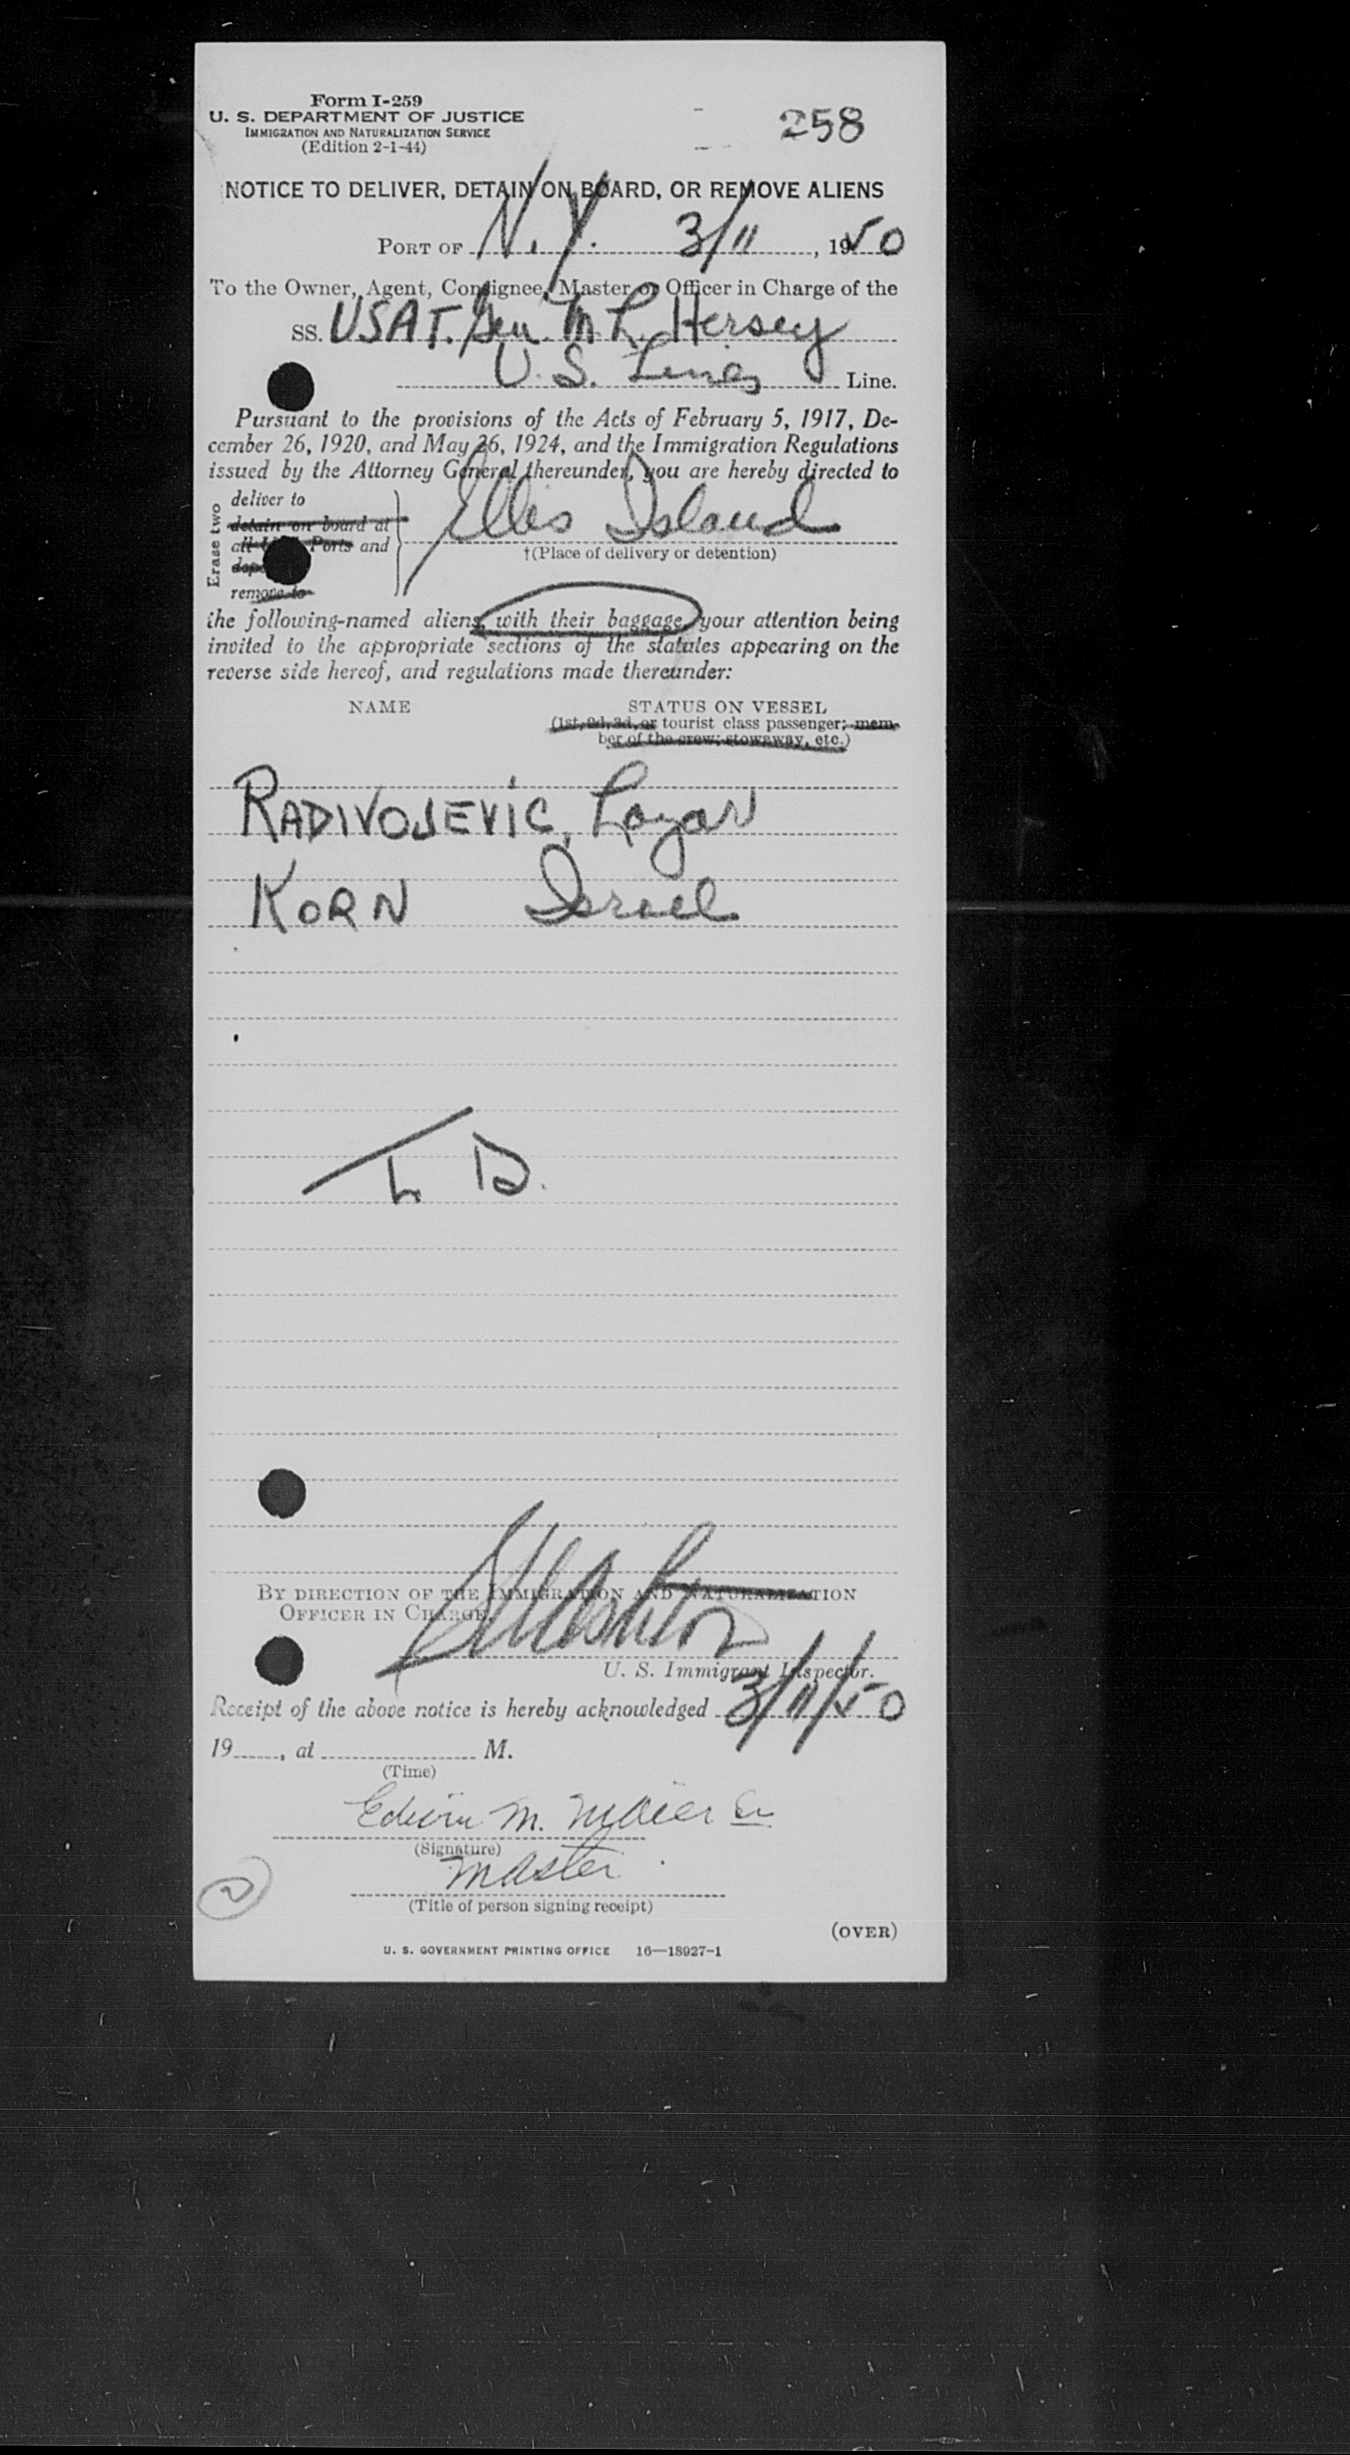 Form I-259
U. S. DEPARTMENT OF JUSTICE
IMMIGRATION AND NATURALIZATION SERVICE
(Edition 2-1-44)
258
NOTICE TO DELIVER, DETAIN ON BOARD, OR REMOVE ALIENS
PORT OF N.Y. 3/11, 1950
To the Owner, Agent, Consignee, Master or Officer in Charge of the
SS. USAT. Gen. M L. Hersey
U. S. Lines Line.
Pursuant to the provisions of the Acts of February 5, 1917, De-
cember 26, 1920, and May 26, 1924, and the Immigration Regulations
issued by the Attorney General thereunder, you are hereby directed to
Erase two
deliver to
detain on board at
all Ports and
remove to
Ellis Island
†(Place of delivery or detention)
the following-named aliens, with their baggage, your attention being
invited to the appropriate sections of the statutes appearing on the
reverse side hereof, and regulations made thereunder:
NAME STATUS ON VESSEL
(1st, 2d, 3d, or tourist class passenger; mem-
ber of the crew; stowaway, etc.)
RADIVOJEVIC, Lazar
KORN Israel
BY DIRECTION OF THE IMMIGRATION AND NATURALIZATION
OFFICER IN CHARGE.
U. S. Immigrant Inspector.
Receipt of the above notice is hereby acknowledged 3/11/50
19......, at .................... M.
(Time)
Edwin M. Maier
(Signature)
Master
(Title of person signing receipt)
2
(OVER)
U. S. GOVERNMENT PRINTING OFFICE 16—18927-1